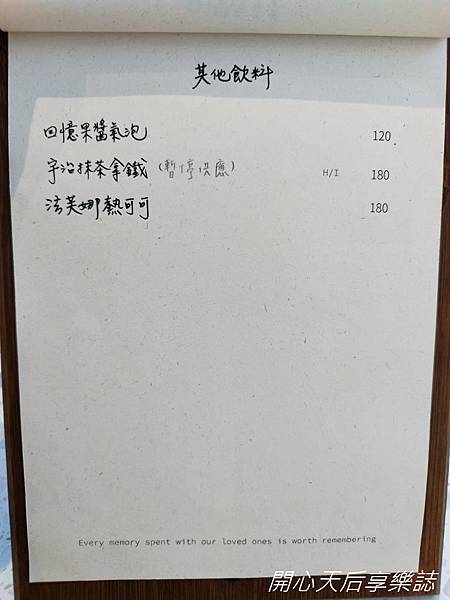 其他飲料
回憶果醬氣泡 120
宇治抹茶拿鐵（暫停供應） H/I 180
法芙娜熱可可 180
Every memory spent with our loved ones is worth remembering
開心天后享樂誌